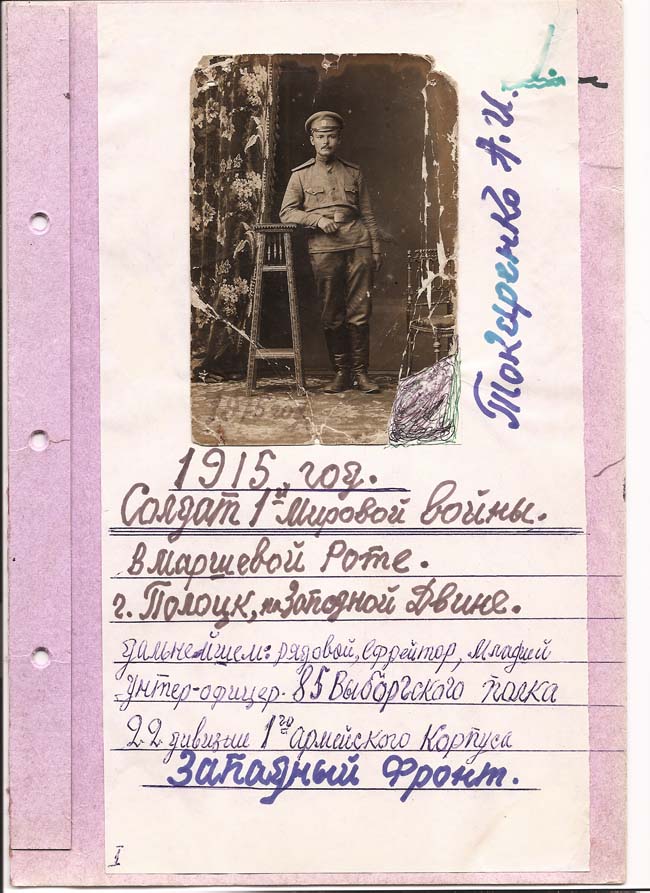 Токаренко А. И.
1915 год
1915 год.
Солдат 1й Мировой войны.
в Маршевой Роте.
г. Полоцк, на Западной Двине.
дальнейшем: рядовой, ефрейтор, младший
унтер-офицер. 85 Выборгского полка
22 дивизии 1го Армейского Корпуса
Западный Фронт.
I